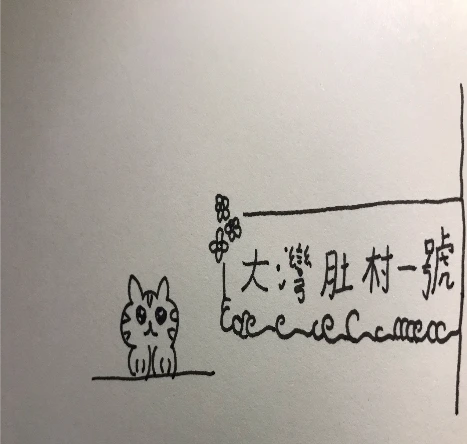 大灣肚村一號